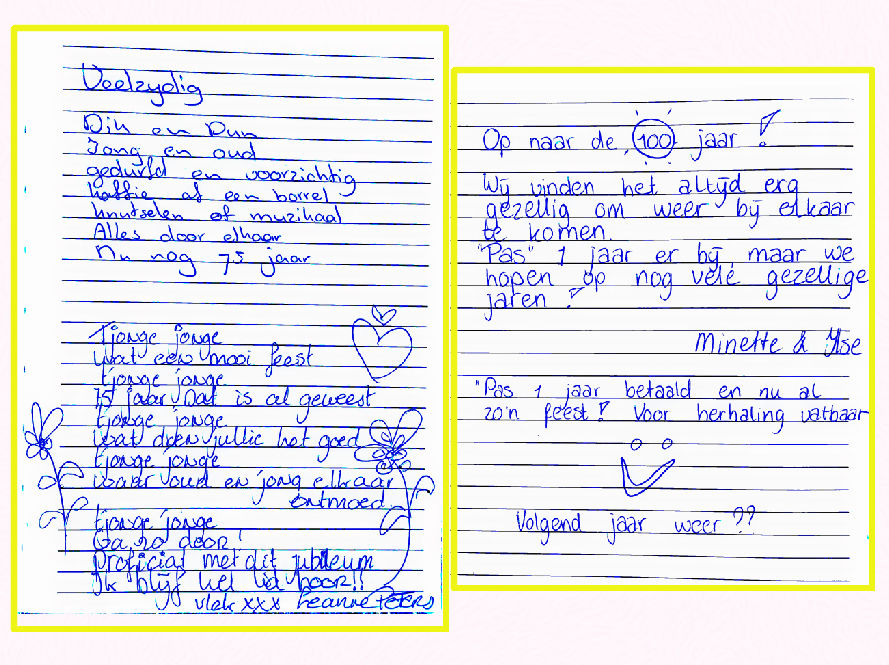 Veelzydig
Dik en Dun
Jong en oud
gedurfd en voorzichtig
koffie of een borrel
knutselen of muzikaal
Alles door elkaar
Nu nog 75 jaar
Tjonge jonge
wat een mooi feest
tjonge jonge
75 jaar Dat is al geweest
tjonge jonge
wat doen jullie het goed
tjonge jonge
waar oud en jong elkaar
ontmoed
tjonge jonge
Ga zo door!
Proficiat met dit jubileum
Ik blijf hel lid hoor!!
xxx
Op naar de 100 jaar!
Wij vinden het altijd erg
gezellig om weer bij elkaar
te komen.
"Pas" 1 jaar er bij, maar we
hopen op nog vele gezellige
jaren!
Minette & Ilse
"Pas 1 jaar betaald en nu al
zo'n feest! Voor herhaling vatbaar
Volgend jaar weer??